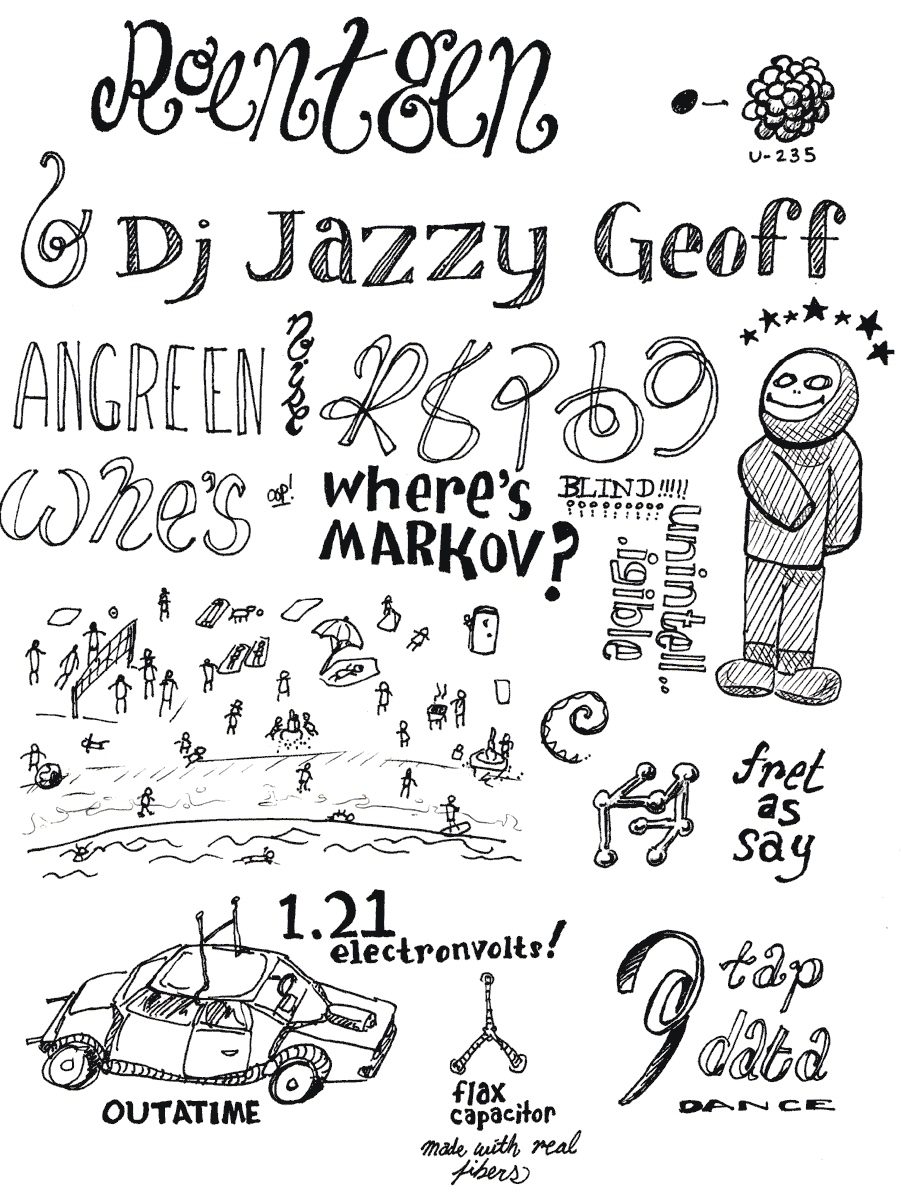 Roentgen
U-235
6 Dj Jazzy Geoff
ANGREEN
noise
R
8
P
6
9
Who's
oop!
where's
MARKOV?
BLIND!!!!!
unintell..
.igible
fret
as
say
1.21
electronvolts!
OUTATIME
flax
capacitor
made with real
fibers
9
tap
data
DANCE